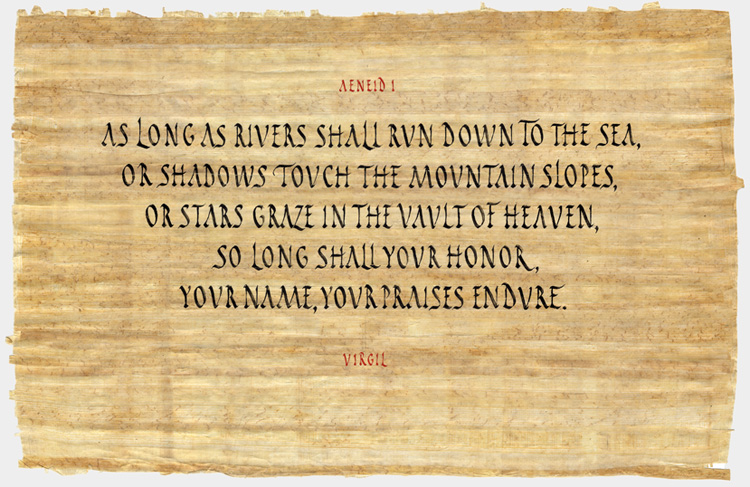 AENEID I
AS LONG AS RIVERS SHALL RVN DOWN TO THE SEA,
OR SHADOWS TOVCH THE MOVNTAIN SLOPES,
OR STARS GRAZE IN THE VAVLT OF HEAVEN,
SO LONG SHALL YOVR HONOR,
YOVR NAME, YOVR PRAISES ENDVRE.
VIRGIL